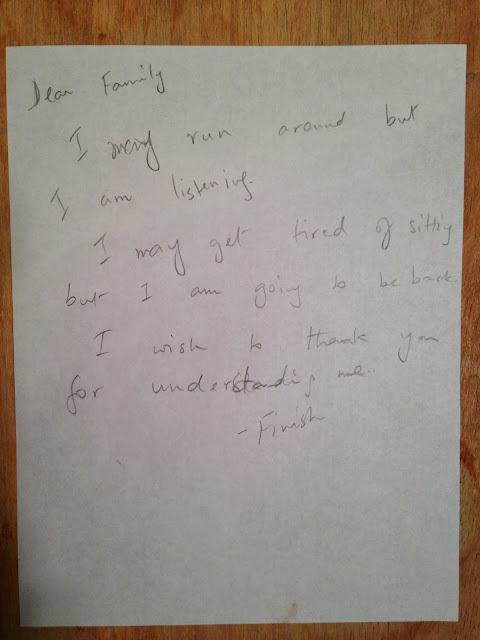 Dear Family
I may run around but
I am listening.
I may get tired of sitting
but I am going to be back.
I wish to thank you
for understanding me..
- Finish